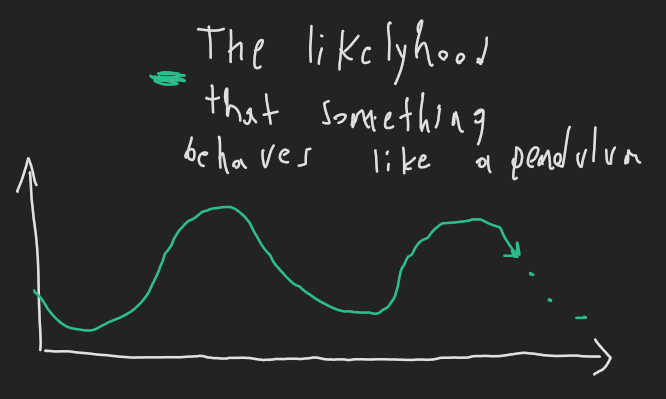 The likelyhood
that something
behaves like a pendulum